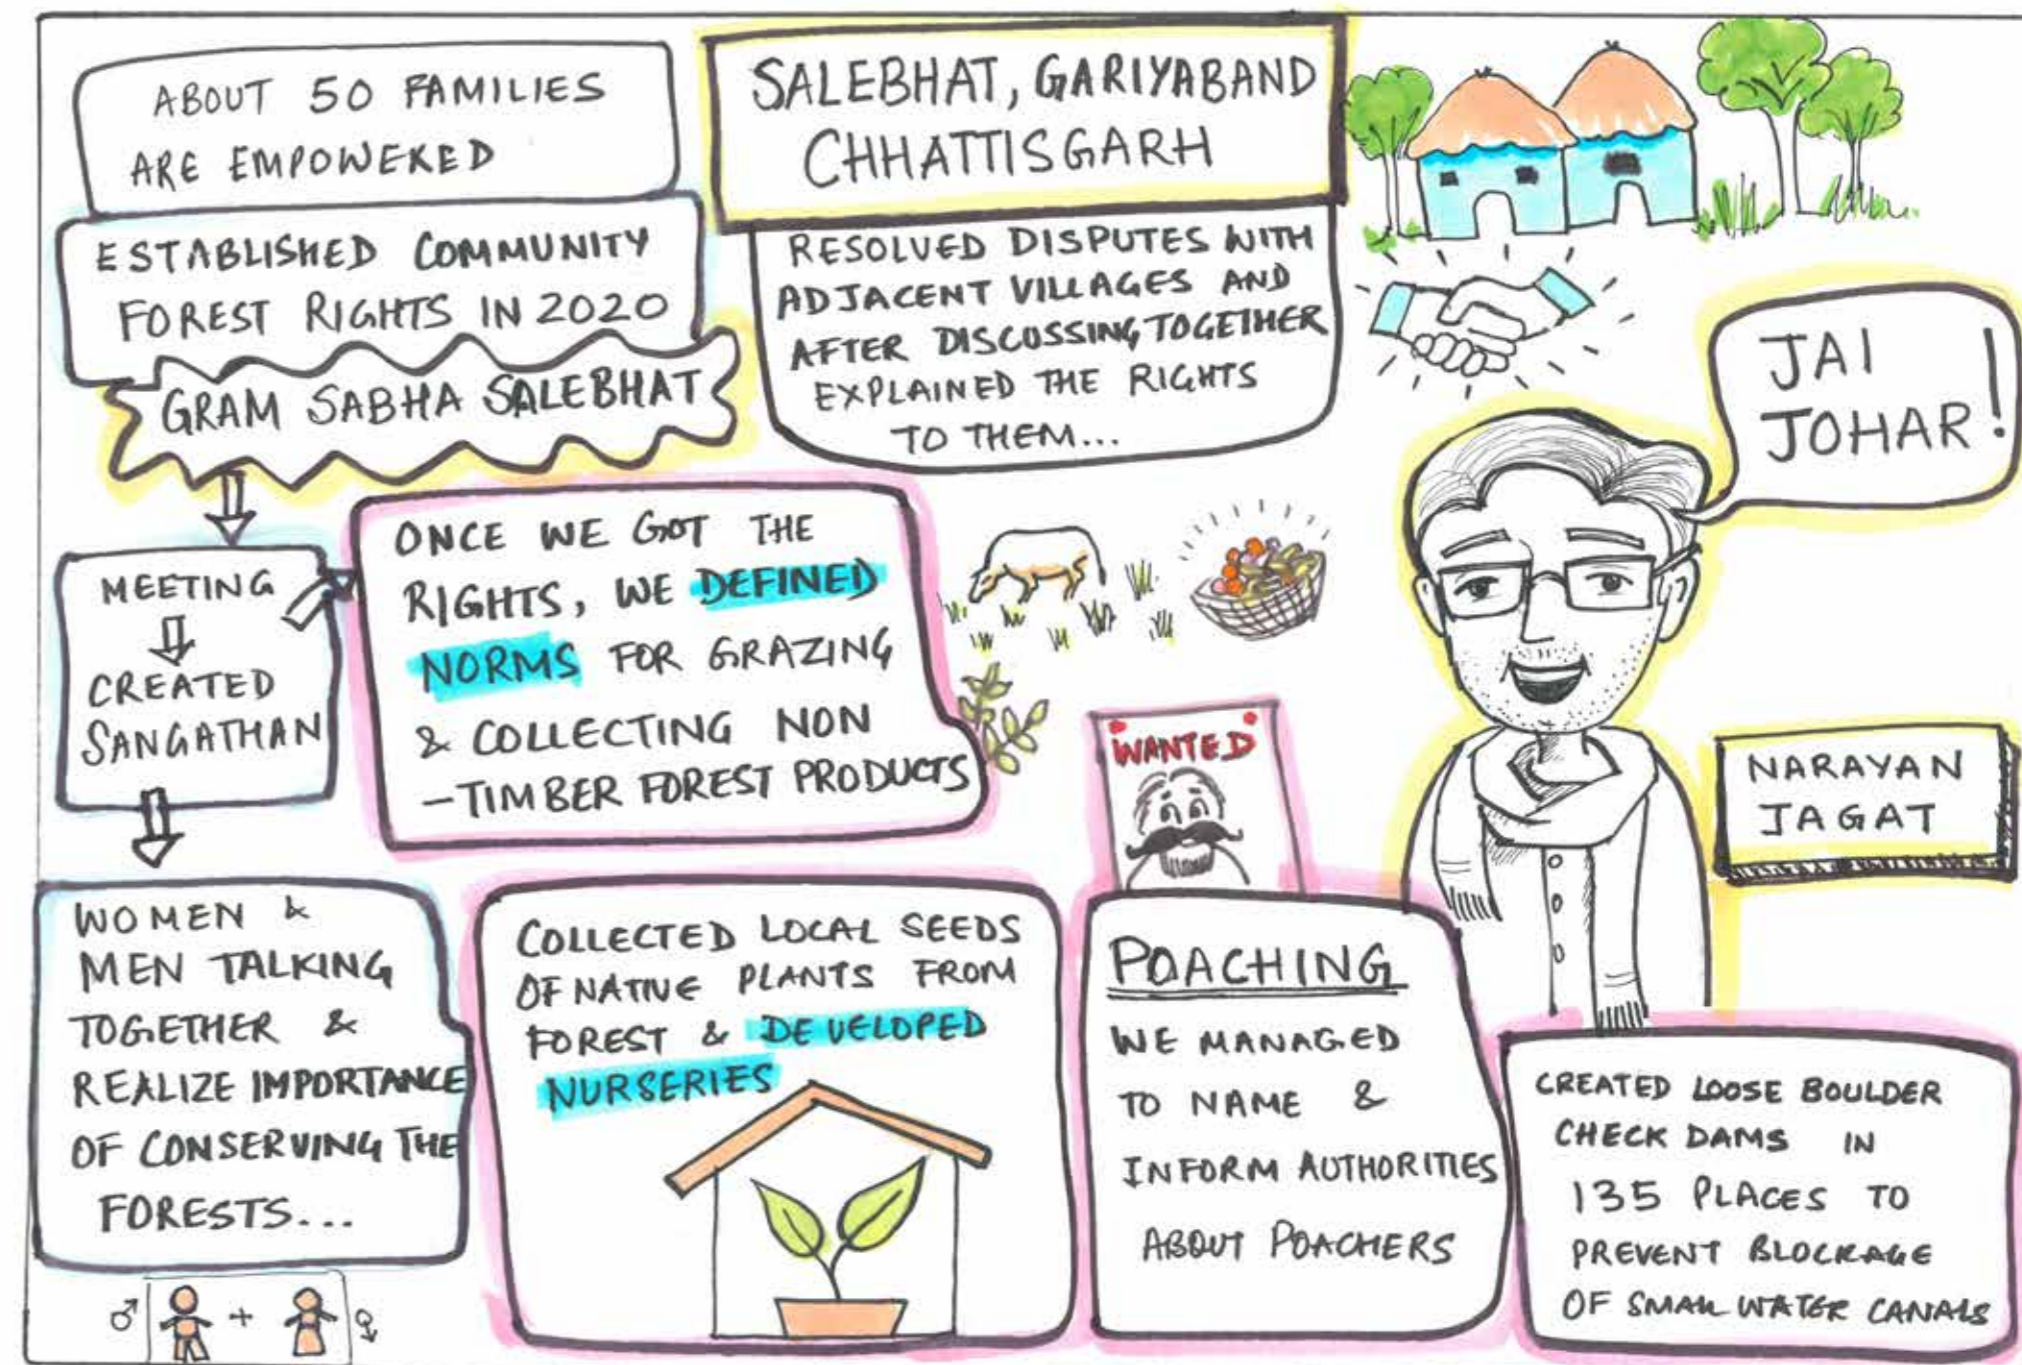 ABOUT 50 FAMILIES
ARE EMPOWERED
ESTABLISHED COMMUNITY
FOREST RIGHTS IN 2020
GRAM SABHA SALEBHAT
SALEBHAT, GARIYABAND
CHHATTISGARH
RESOLVED DISPUTES WITH
ADJACENT VILLAGES AND
AFTER DISCUSSING TOGETHER
EXPLAINED THE RIGHTS
TO THEM...
JAI
JOHAR!
MEETING
CREATED
SANGATHAN
ONCE WE GOT THE
RIGHTS, WE DEFINED
NORMS FOR GRAZING
& COLLECTING NON
-TIMBER FOREST PRODUCTS
WANTED
NARAYAN
JAGAT
WOMEN &
MEN TALKING
TOGETHER &
REALIZE IMPORTANCE
OF CONSERVING THE
FORESTS...
♂ + ♀
COLLECTED LOCAL SEEDS
OF NATIVE PLANTS FROM
FOREST & DEVELOPED
NURSERIES
POACHING
WE MANAGED
TO NAME &
INFORM AUTHORITIES
ABOUT POACHERS
CREATED LOOSE BOULDER
CHECK DAMS IN
135 PLACES TO
PREVENT BLOCKAGE
OF SMALL WATER CANALS